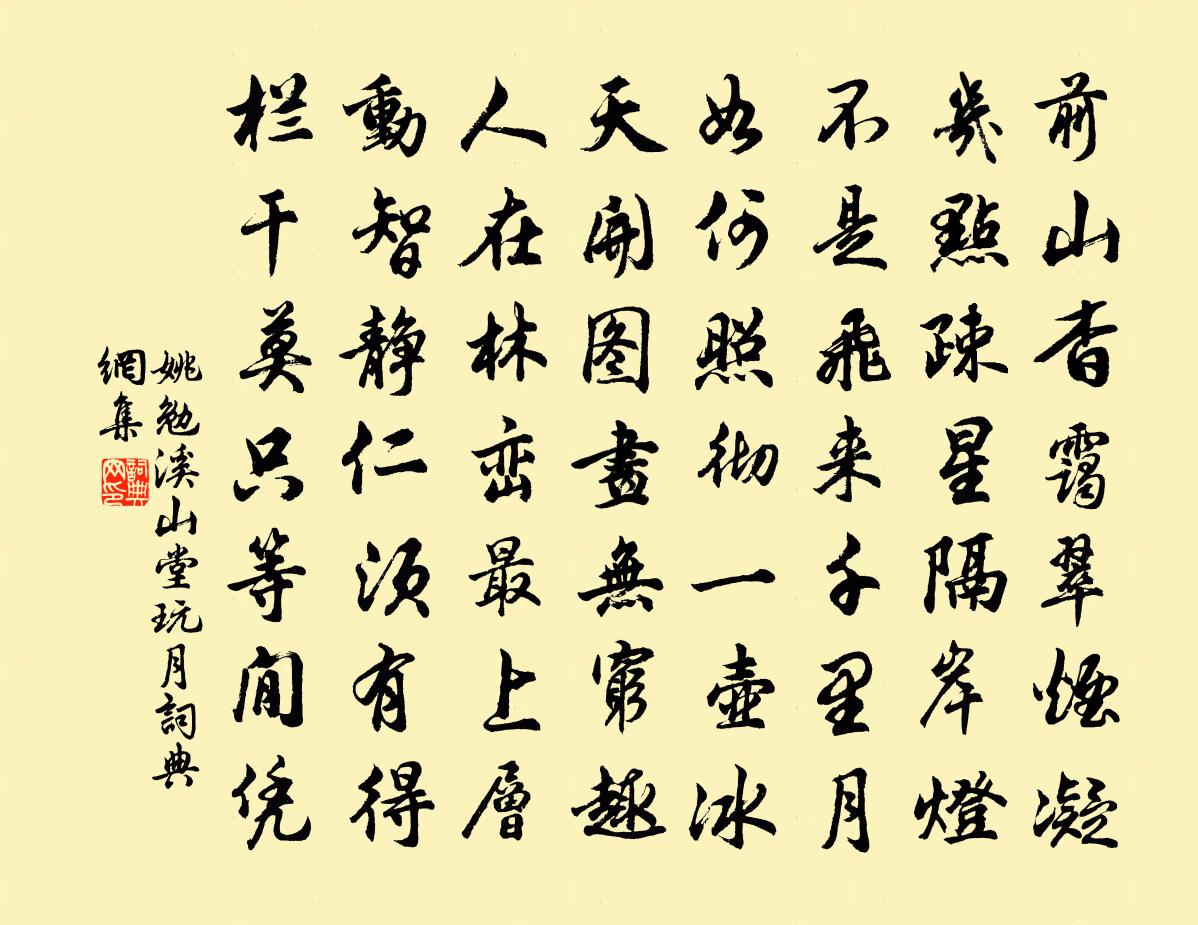 前山杳靄翠煙凝
幾點疎星隔岸燈
不是飛来千里月
如何照彻一壺冰
天開图畫無窮趣
人在林峦最上層
動智静仁须有得
栏干莫只等闲凭
姚勉溪山堂玩月詞典
網集
詞典
网印